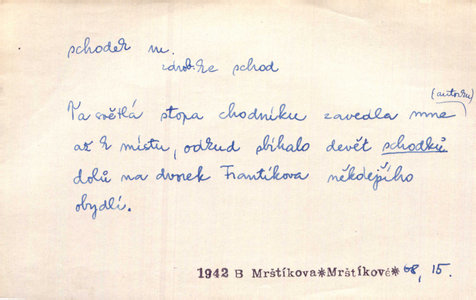 schodek m.
zdrob. ke schod
(autorku)
Ta světlá stopa chodníku zavedla mne
až k místu, odkud sbíhalo devět schodků
dolů na dvorek Frantíkova někdejšího
obydlí.
1942 B Mrštíkova*Mrštíkové* 68, 15.